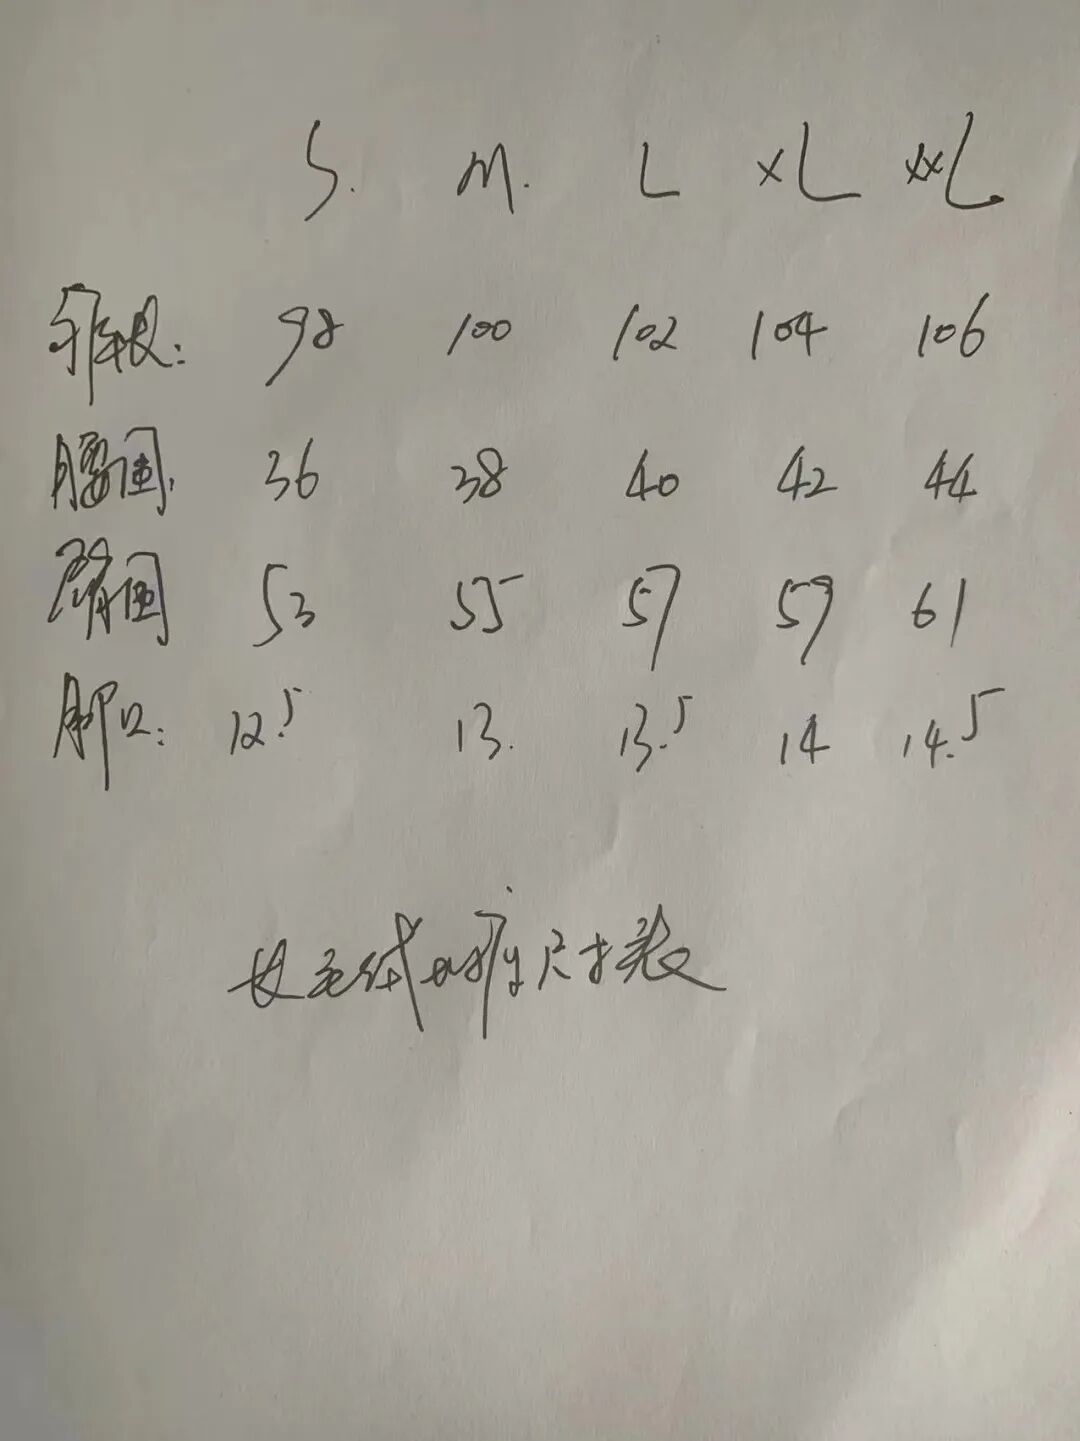 S. M. L XL XXL
裤长: 98 100 102 104 106
腰围. 36 38 40 42 44
臀围 53 55 57 59 61
脚口: 12.5 13. 13.5 14 14.5
尺寸表